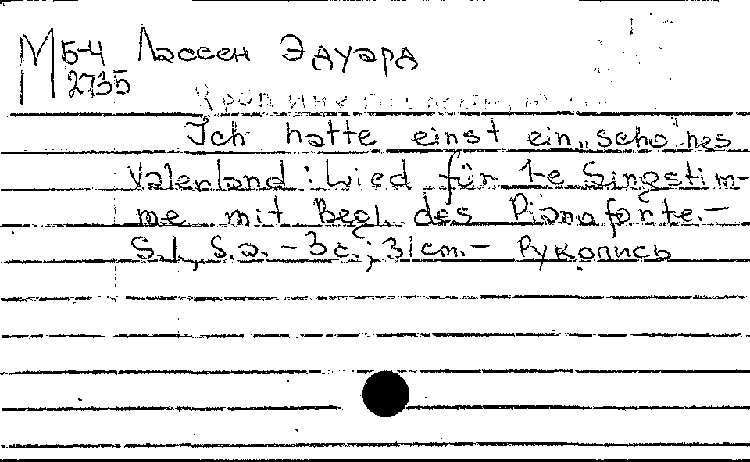 М Б-4 Лассен Эдуард
2735
Ich hatte einst ein schönes
Vaterland : Lied für 1-e Singstim-
me mit Begl. des Pianoforte.–
S.l., s.a. – 3 с.; 31 cm. – Рукопись